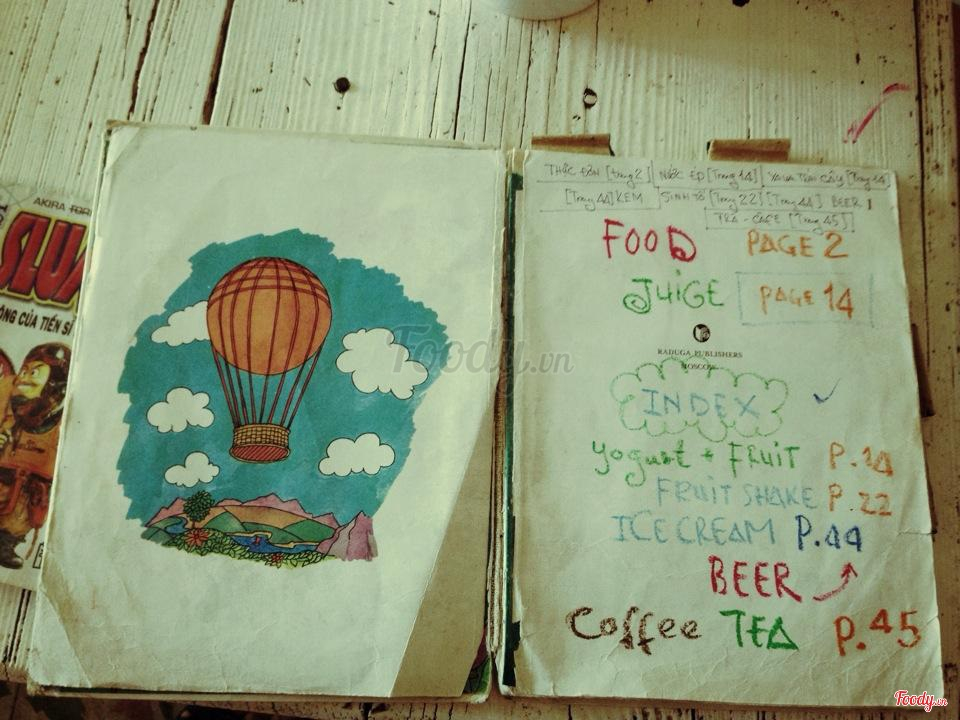 AKIRA TOR
SLU
ÔNG CỦA TIẾN SĨ
THỰC ĐƠN [trang 2] NƯỚC ÉP [Trang 14] YAUA TRÁI CÂY [Trang 14]
[Trang 44] KEM SINH TỐ [Trang 22] [Trang 44] BEER
TRÀ - CAFE [Trang 45]
FOOD PAGE 2
JUiGE PAGE 14
RADUGA PUBLISHERS
MOSCOW
INDEX
yogurt + FRUIT P.14
FRUIT SHAKE P.22
ICE CREAM P.44
BEER
Coffee TEA P.45
Foody.vn
Foody.vn